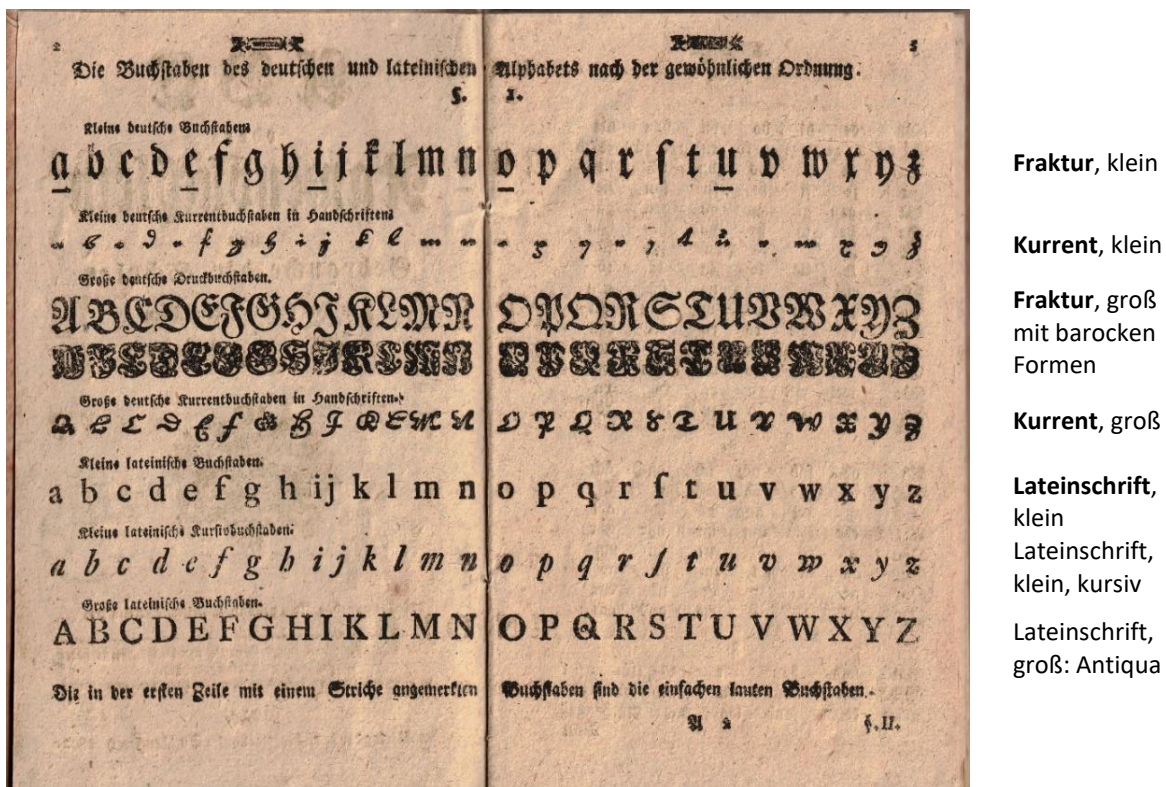 2 3
Die Buchſtaben des deutſchen und lateiniſchen Alphabets nach der gewöhnlichen Ordnung.
§. 1.
Kleine deutſche Buchſtaben.
a b c d e f g h i j k l m n o p q r ſ t u v w x y z
Kleine deutſche Kurrentbuchſtaben in Handſchriften.
Große deutſche Druckbuchſtaben.
A B C D E F G H J K L M N O P Q R S T U V W X Y Z
Große deutſche Kurrentbuchſtaben in Handſchriften.
Kleine lateiniſche Buchſtaben.
a b c d e f g h i j k l m n o p q r ſ t u v w x y z
Kleine lateiniſche Kurſivbuchſtaben.
a b c d e f g h i j k l m n o p q r ſ t u v w x y z
Große lateiniſche Buchſtaben.
A B C D E F G H I K L M N O P Q R S T U V W X Y Z
Die in der erſten Zeile mit einem Striche angemerkten Buchſtaben ſind die einfachen lauten Buchſtaben.
A 2 §.II.
Fraktur, klein
Kurrent, klein
Fraktur, groß
mit barocken
Formen
Kurrent, groß
Lateinschrift,
klein
Lateinschrift,
klein, kursiv
Lateinschrift,
groß: Antiqua